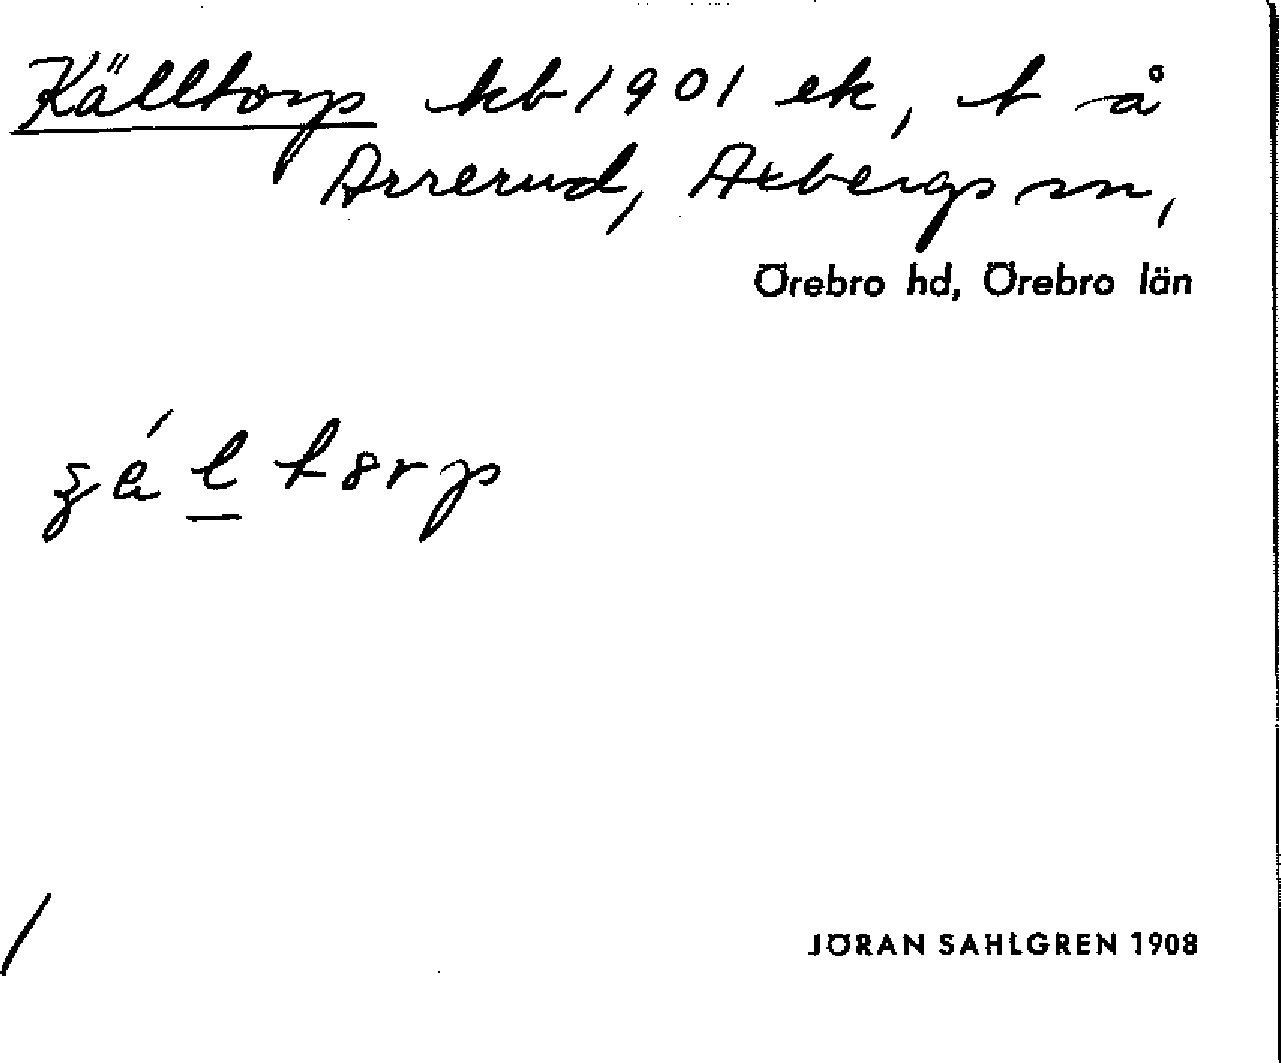 Källtorp kb 1901 ek, t å
Arrerud, Axbergs sn,
Örebro hd, Örebro län
JÖRAN SAHLGREN 1908